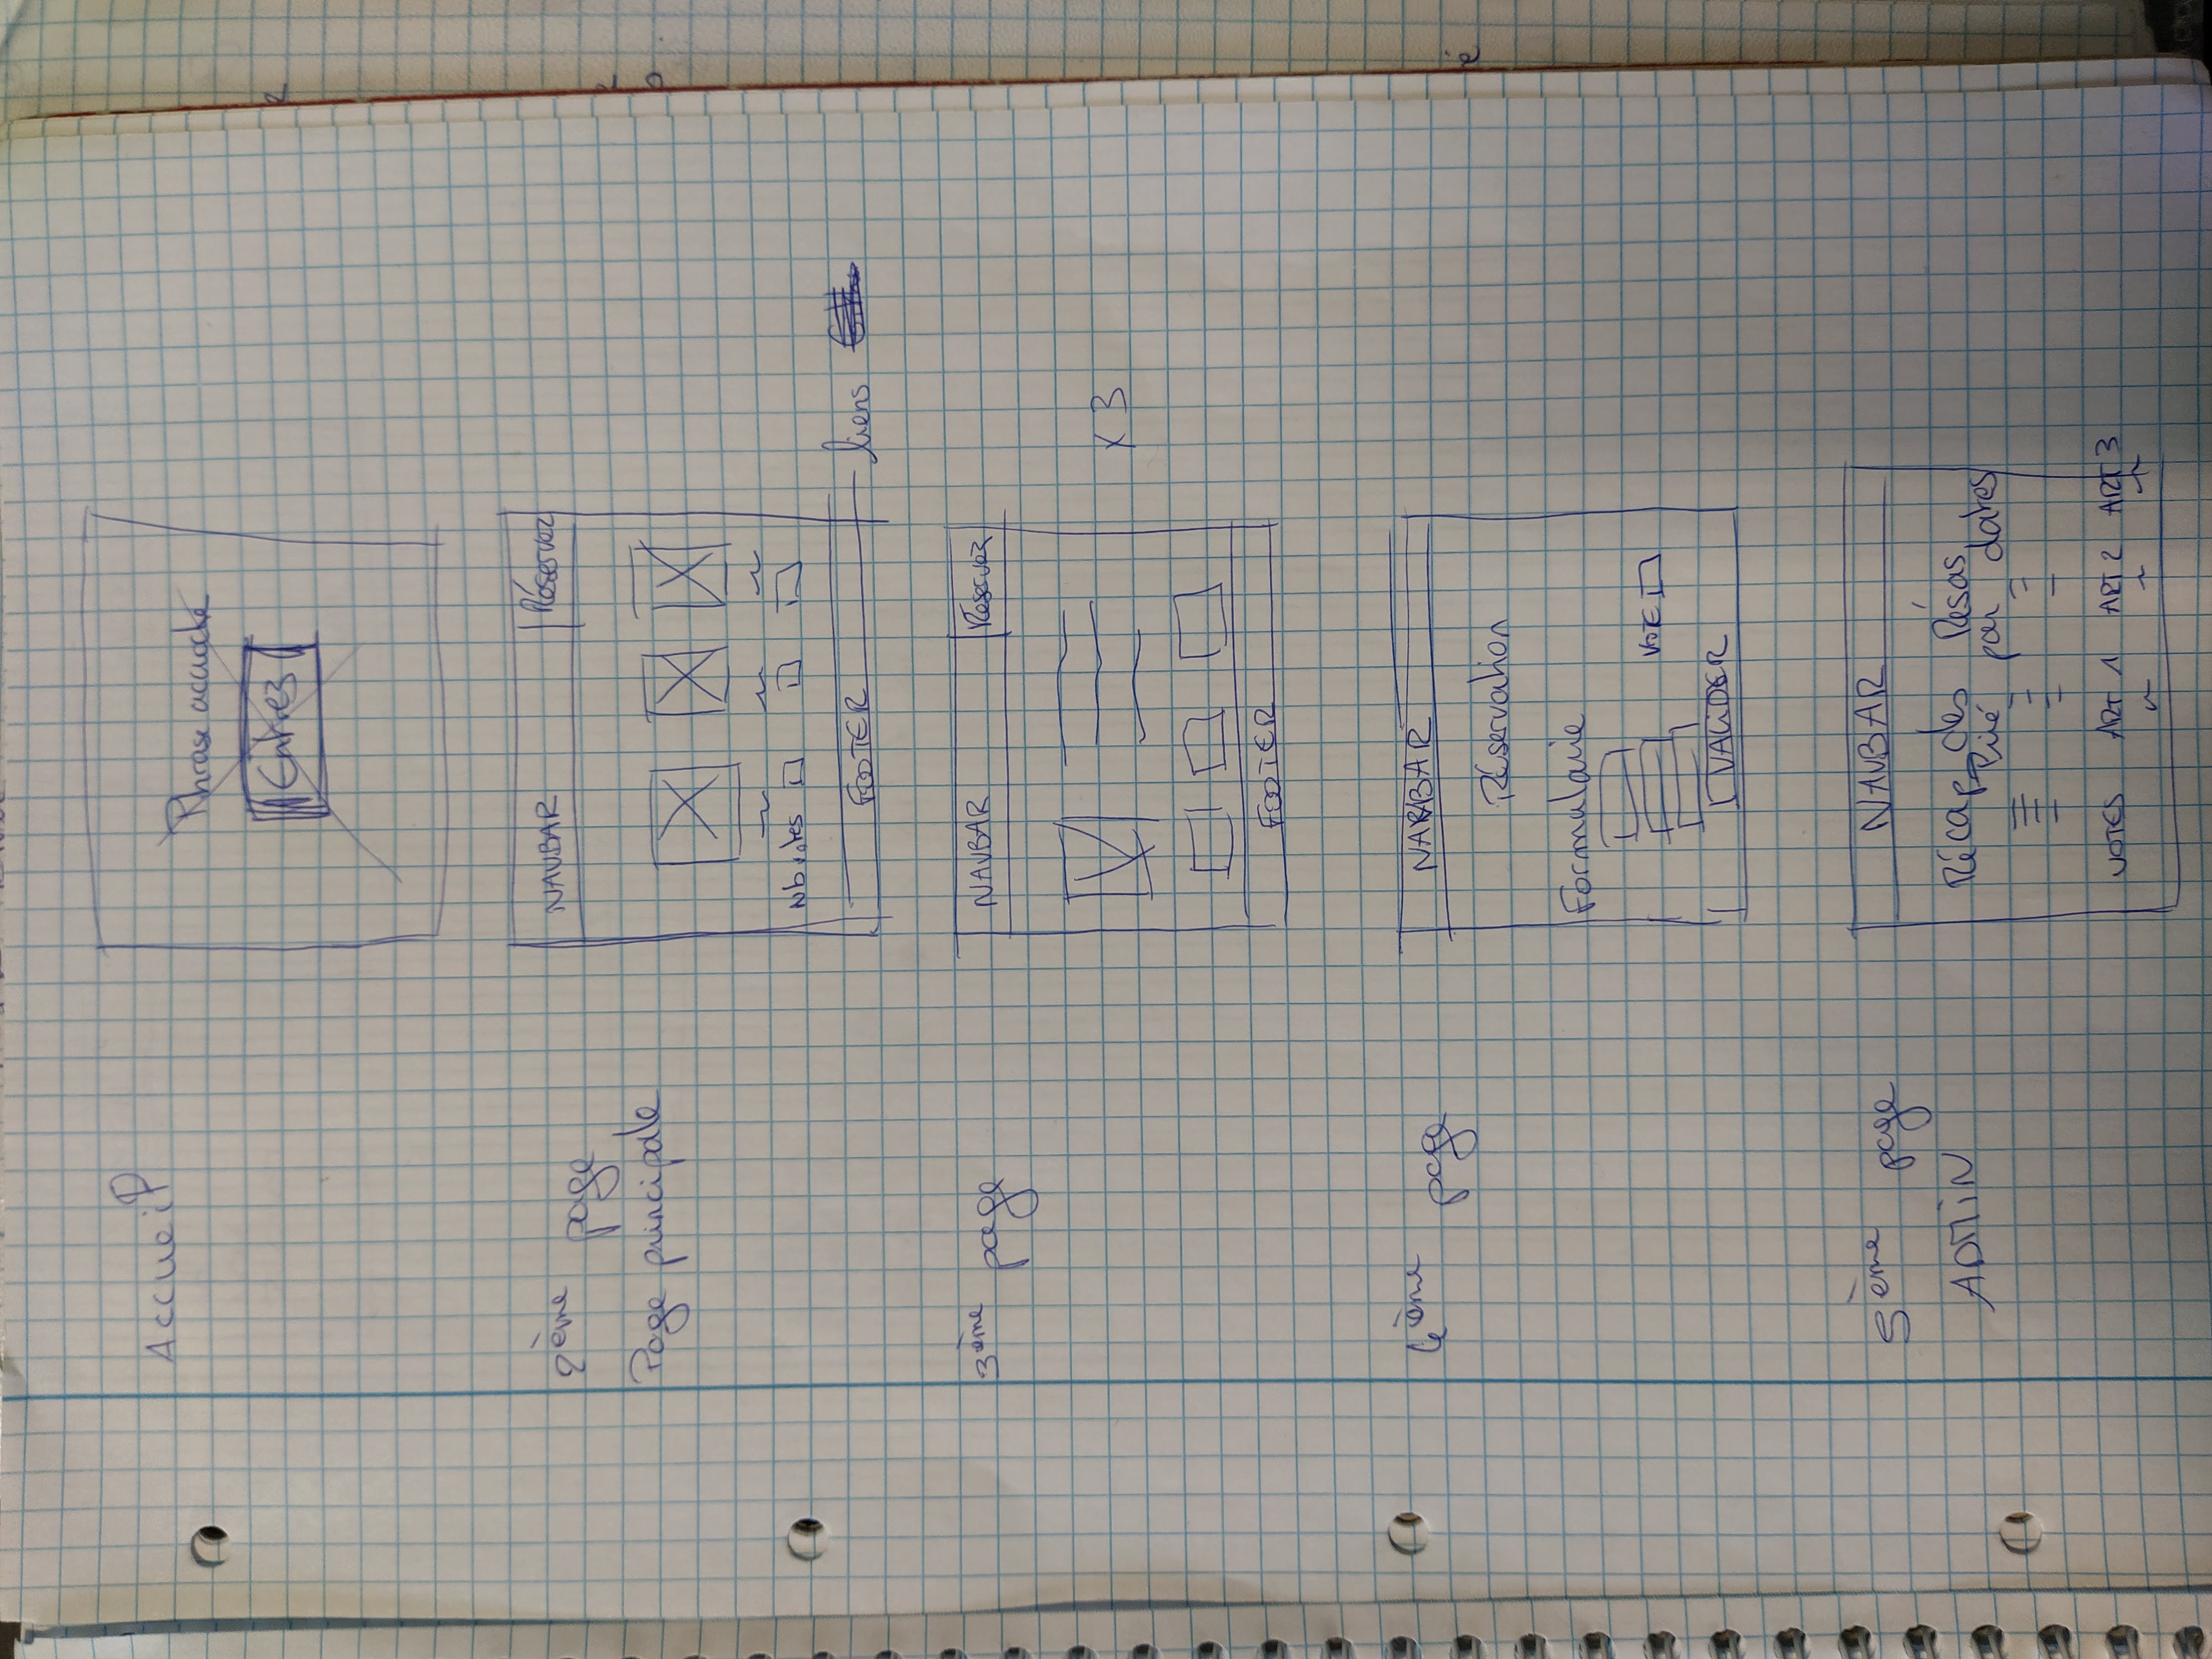 Accueil
Phrase accroche
Entrez
2ème page
Page principale
NAVBAR
Réservez
Nb votes
FOOTER
liens
3ème page
NAVBAR
Réservez
x 3
FOOTER
4ème page
NAVBAR
Réservation
Formulaire
VOTE
VALIDER
5ème page
ADMIN
NAVBAR
Récap des Résas
Trié par dates
VOTES ART 1 ART 2 ART 3